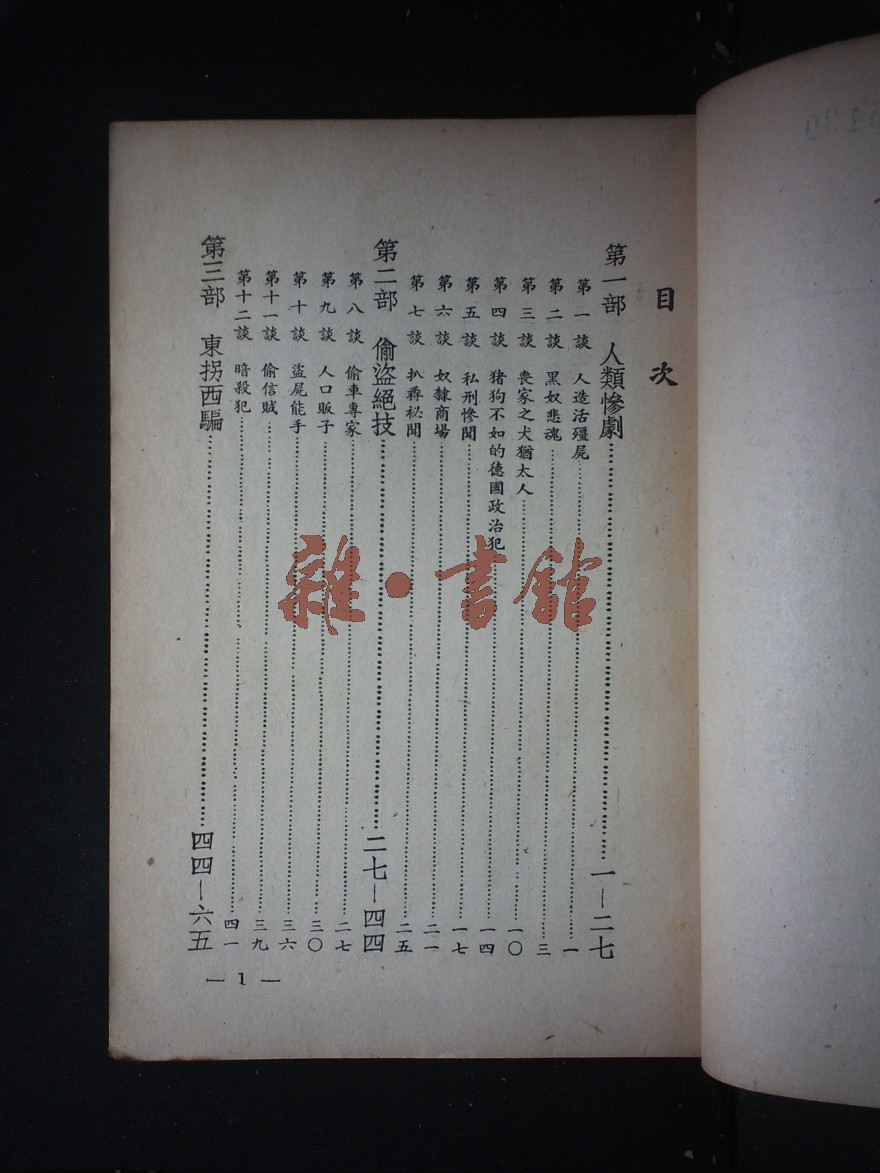 目次
第一部 人類慘劇………一—二七
第一談 人造活殭屍………一
第二談 黑奴悲魂………三
第三談 喪家之犬猶太人………一〇
第四談 猪狗不如的德國政治犯………一四
第五談 私刑慘聞………一七
第六談 奴隸商場………二一
第七談 扒尋祕聞………二五
第二部 偷盜絕技………二七—四四
第八談 偷車專家………二七
第九談 人口販子………三〇
第十談 盜屍能手………三六
第十一談 偷信賊………三九
第十二談 暗殺犯………四一
第三部 東拐西騙………四四—六五
— 1 —
雜·書館